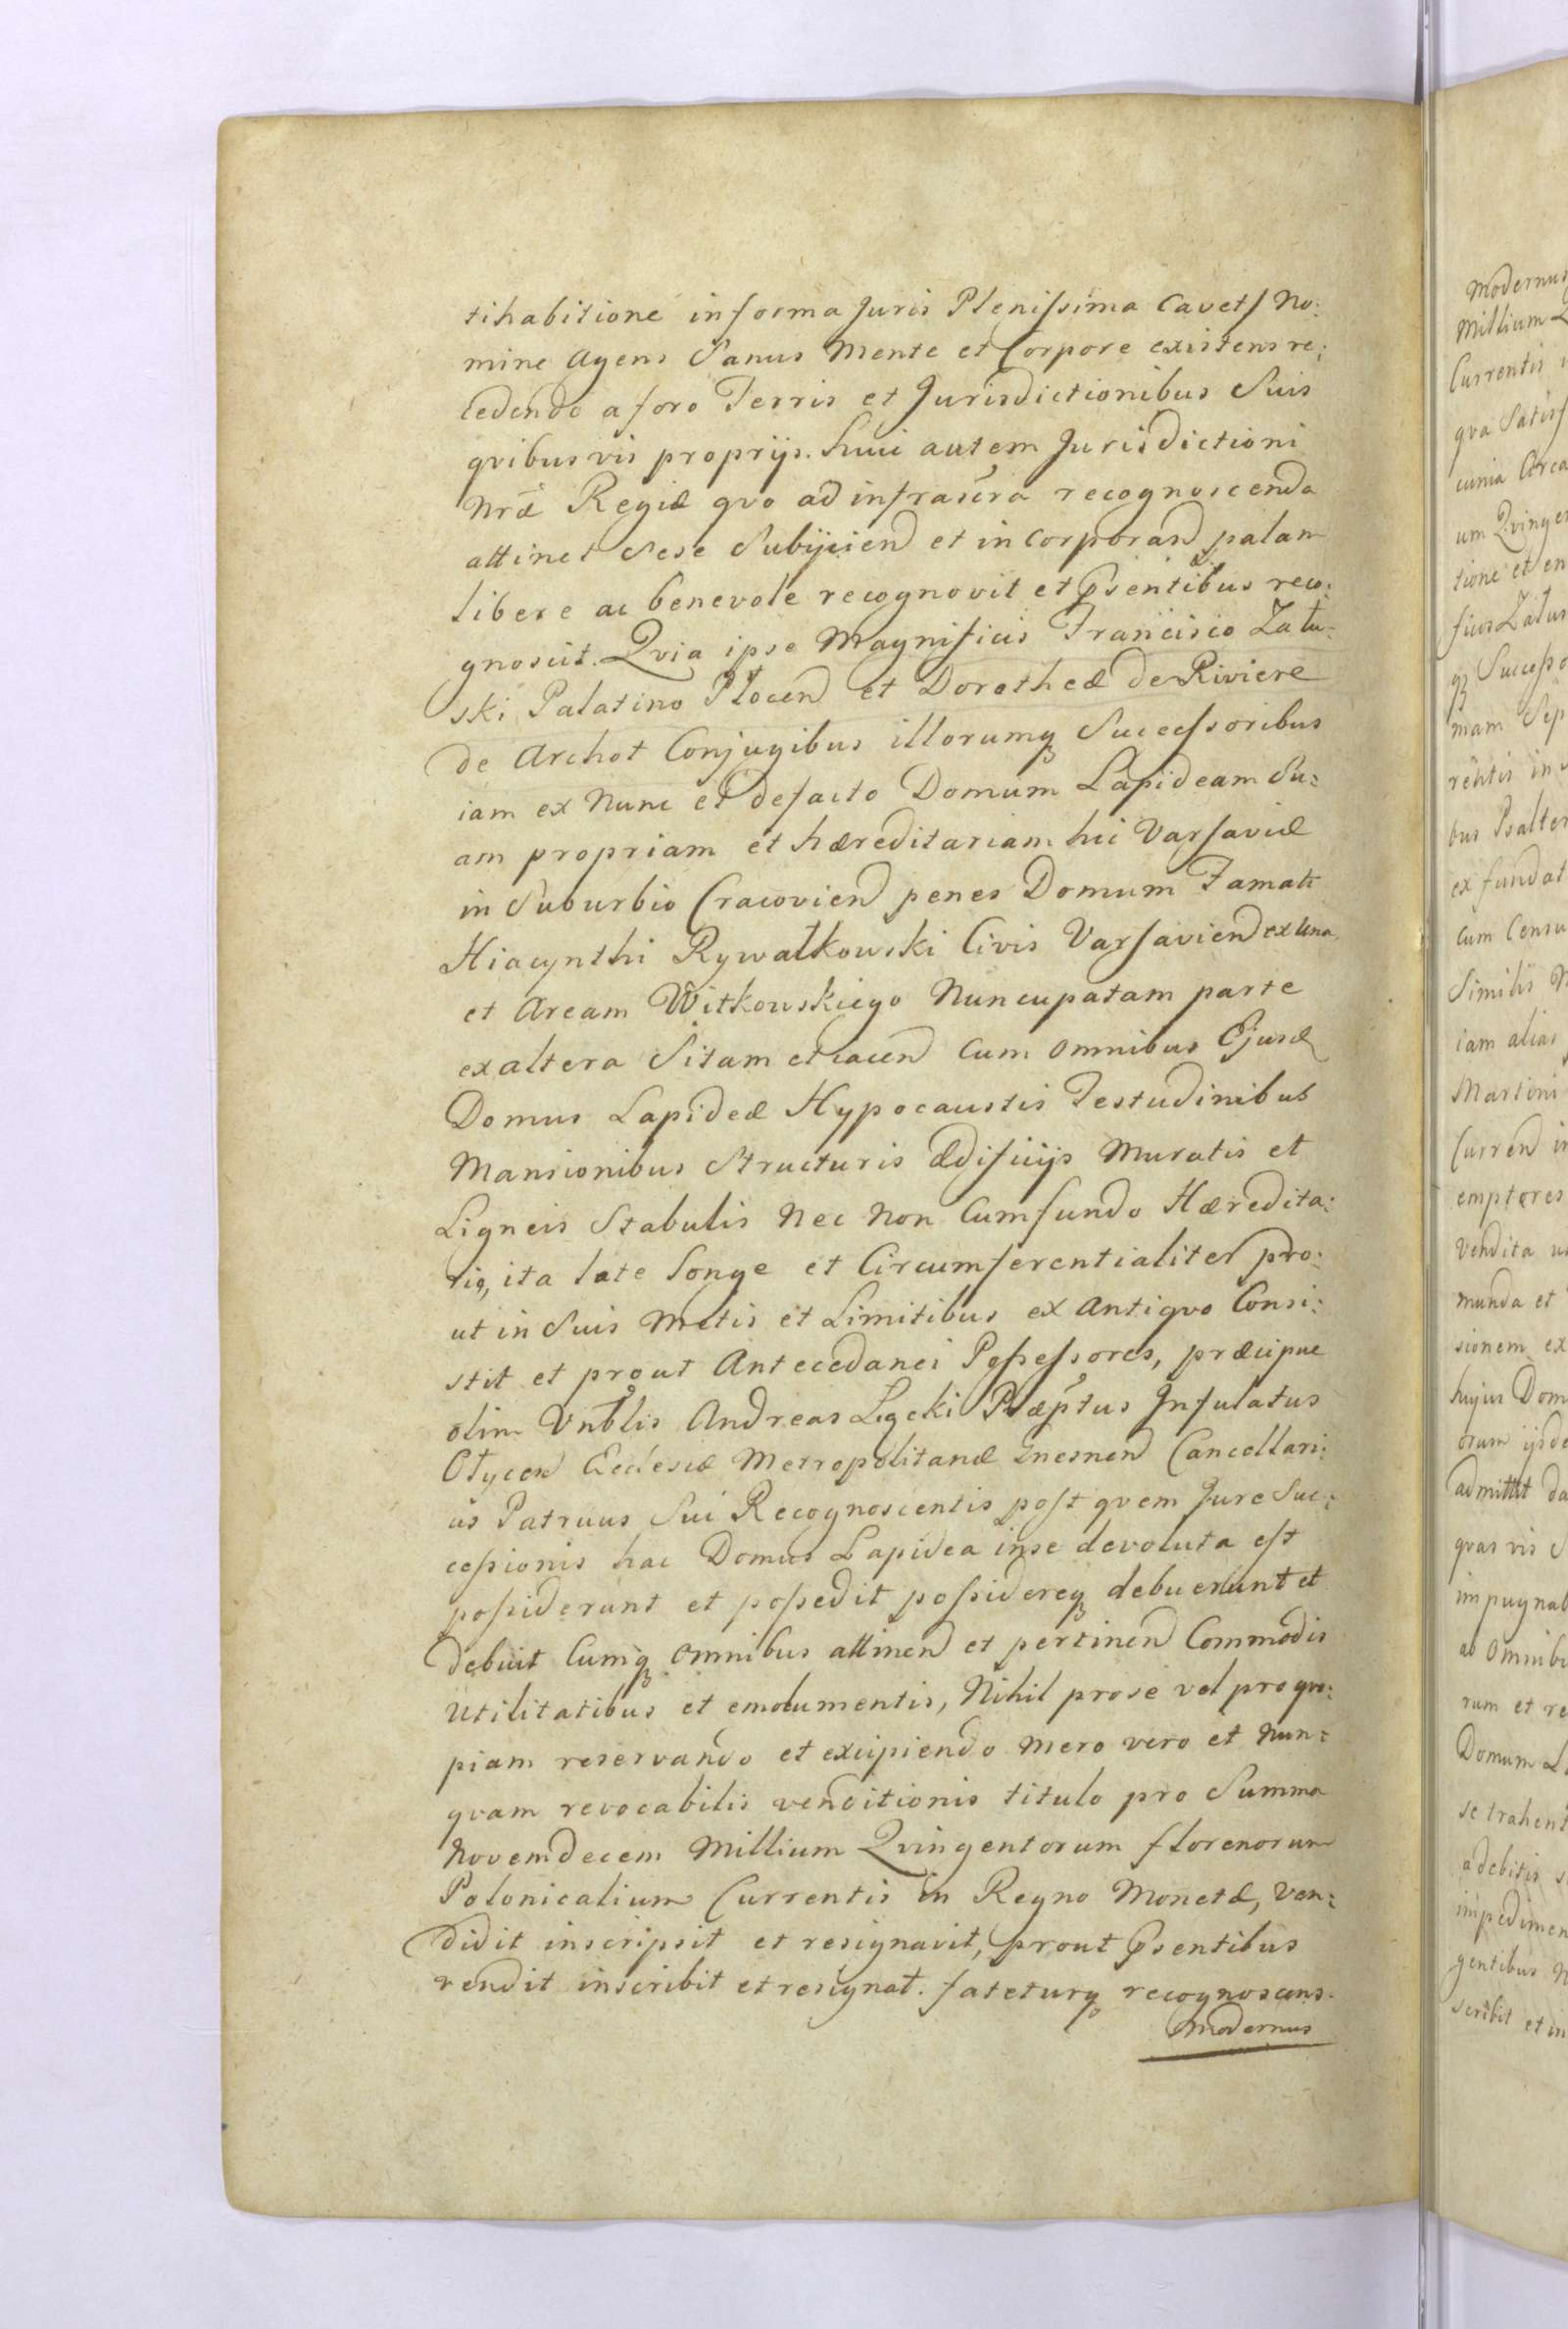 tihabitione in forma Juris Plenissima Cavet/ No:
mine Agens Sanus Mente et Corpore existens re:
cedendo a foro Terris et Jurisdictionibus Suis
qvibusvis proprijs. huic autem Jurisdictioni
Nræ Regiæ qvo ad infrascra recognoscenda
attinet Sese Subijciend et incorporand palam
libere ac benevole recognovit et Psentibus reco:
gnoscit. Qvia ipse Magnificis Francisco Zału-
ski Palatino Płocen et Dorotheæ de Riviere
de Archot Conjugibus illorumq Successoribus
iam ex Nunc et defacto Domum Lapideam Su:
am propriam et hæreditariam hic Varsaviæ
in Suburbio Cracovien penes Domum Famati
Hiacynthi Rywałkowski Civis Varsavien ex una
et Aream Witkowskiego Nuncupatam parte
ex altera Sitam et iacen Cum omnibus Ejusd
Domus Lapideæ Hypocaustis Testudinibus
Mansionibus Structuris ædificijs Muratis et
Ligneis Stabulis Nec Non Cum fundo Hæredita:
rio, ita late longe et Circumferentialiter pro:
ut in Suis Metis et Limitibus ex Antiqvo Consi:
stit et prout Antecedanei Possessores, præcipue
olim Vnblis Andreas Legcki Præptus Infulatus
Ołycen Ecclesiæ Metropolitanæ Gnesnen Cancellari:
us Patruus Sui Recognoscentis post qvem Jure Suc:
cessionis hac Domus Lapidea in se devoluta est
possiderunt et possedit possidereq debuerunt et
debuit Cumq omnibus attinen et pertinen Commodis
Utilitatibus et emolumentis, Nihil pro se vel pro qvo:
piam reservando et excipiendo mero vero et Nun:
qvam revocabilis venditionis titulo pro Summa
Novemdecem Millium Qvingentorum florenorum
Polonicalium Currentis in Regno Monetæ, Ven:
didit inscripsit et resignavit, prout Psentibus
vendit inscribit et resignat. fateturq recognoscens.
Modernus
Modernus
Millium
Currentis
qva Satisf
cunia Area
um Qvinge
tione et en
ficus Zalus
q Successo
mam Sep
rentis in
bus Psalter
ex fundat
Cum Censu
Similis
iam alias
Martini
Curren in
emptores
Vendita
munda et
sionem ex
hujus Dom
orum ijsde
admittit da
qvas vis
impugnab
ab omnibu
rum et re
Domum
se trahent
a debitis
impedimen
gentibus
scribit et in